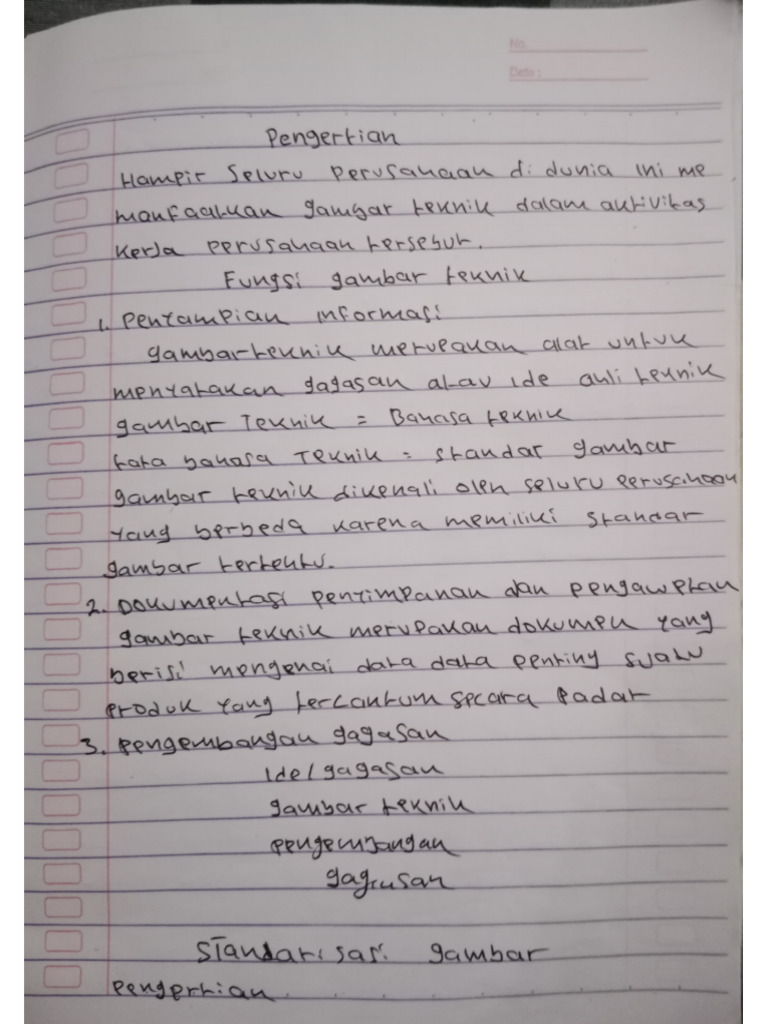 No.
Date :
Pengertian
Hampir seluru perusahaan di dunia ini me
manfaatkan gambar teknik dalam aktivitas
kerja perusahaan tersebut.
Fungsi gambar teknik
1. Penyampian informasi
gambar teknik merupakan alat untuk
menyatakan gagasan atau ide ahli teknik
gambar Teknik = Bahasa teknik
tata bahasa Teknik = standar gambar
gambar teknik dikenali oleh seluru perusahaan
yang berbeda karena memiliki standar
gambar tertentu.
2. Dokumentasi penyimpanan dan pengawetan
gambar teknik merupakan dokumen yang
berisi mengenai data data penting suatu
produk yang tercantum secara padat
3. pengembangan gagasan
Ide/gagasan
gambar teknik
pengembangan
gagasan
Standarisasi gambar
pengertian